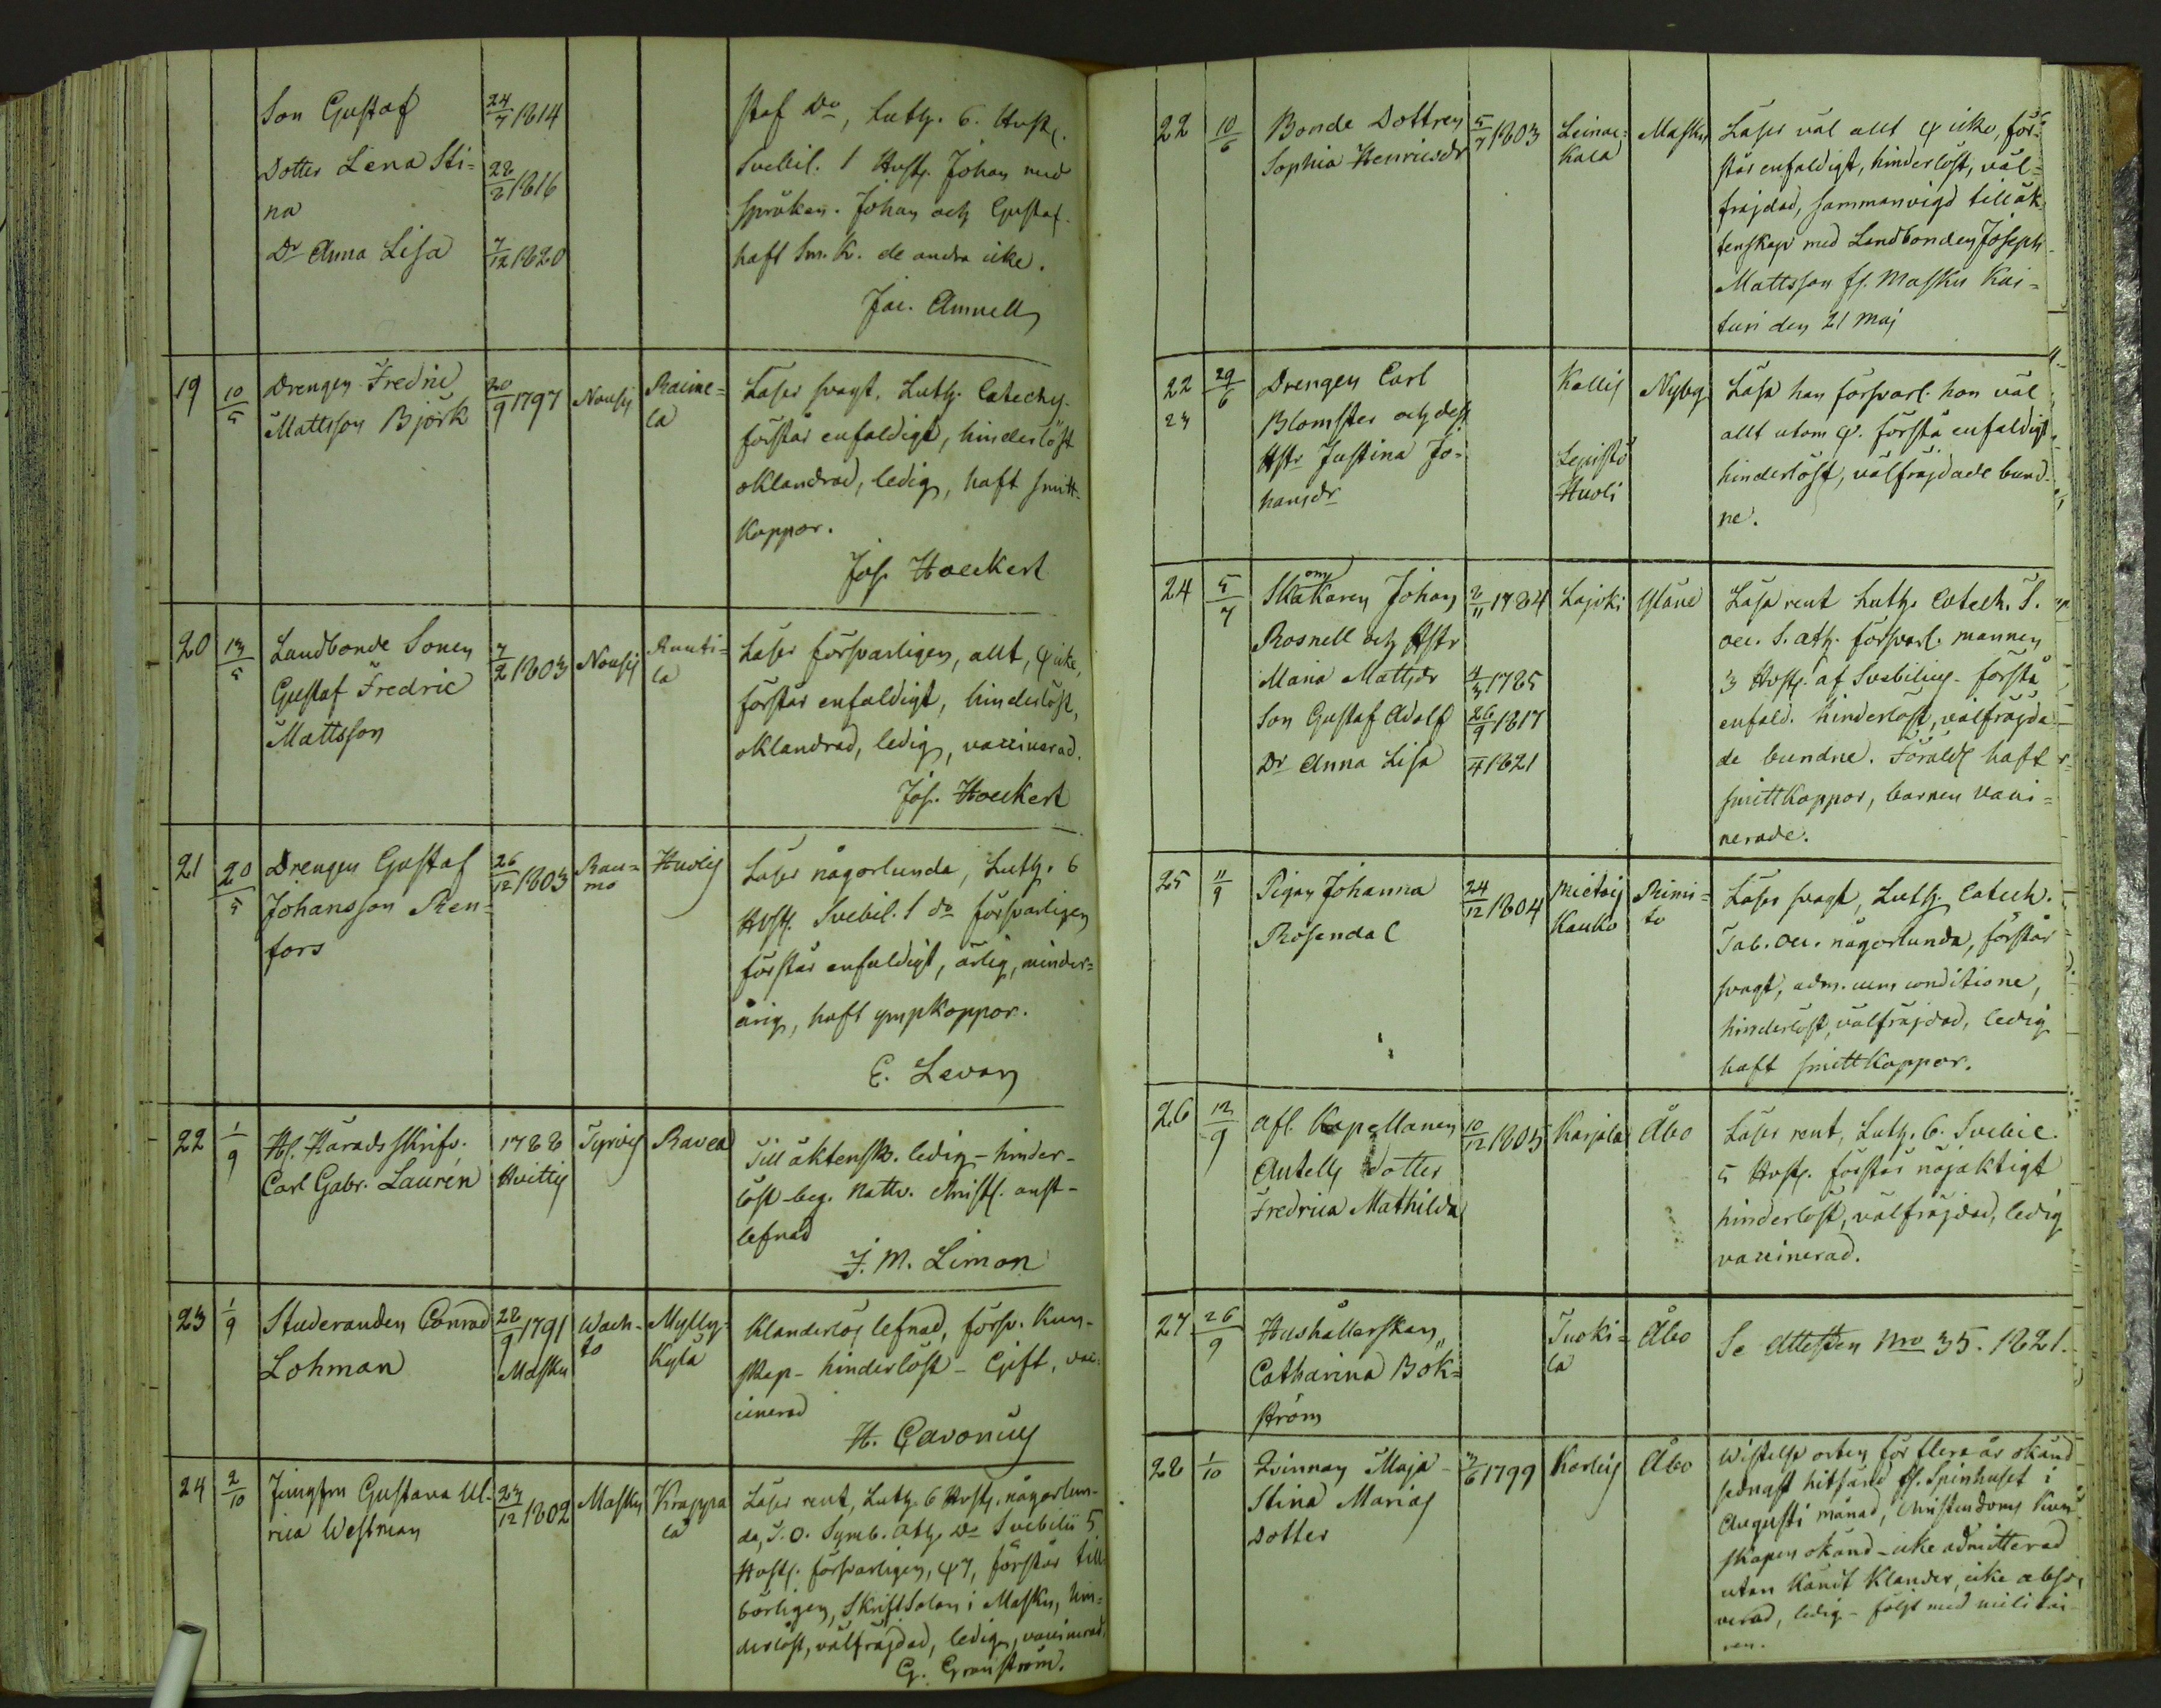 Son Gustaf 24/7 1814
Dotter Lena Sti=
na 28/2 1816
Dr Anna Lisa 7/12 1820
staf Do, Luth. 6. Hvst.
Svebil. 1 Hvst. Johan med
språken. Johan och Gustaf
haft Sm. K. de andra icke.
Jac. Amnell
19 10/5 Drengen Fredric
Mattsson Björk
20/9 1797 Nousis Raime=
la
Läser svagt, Luth. Catech.
förstår enfaldigt, hinderlöst
oklandrad, ledig, haft smitt-
koppor.
Jos. Hoeckert
20 13/5 Landbonde Sonen
Gustaf Fredric
Mattsson
7/2 1803 Nousis Ruuti=
la
Läser försvarligen, allt, φ icke,
förstår enfaldigt, hinderlöst,
oklandrad, ledig, vaccinerad.
Jos. Hoeckert
21 20/5 Drengen Gustaf
Johansson Ren=
fors
26/12 1803 Rau=
mo
Huolis
Läser någorlunda, Luth. 6
Hvst. Svebil. 1 do försvarligen
förstår enfaldigt, ärlig, minder=
årig, haft ympkoppor.
E. Levan
22 1/9 Hr. Härads skrifv.
Carl Gabr. Laurén
1788
Hvittis
Tyrvis Ravea
Till äktensk. ledig - hinder-
löst - beg. Nattv. Christl. anst-
lefnad
J. M. Limon
23 1/9 Studeranden Conrad
Lohman
28/9 1791
Masku
Wach-
to
Mylly=
kylä
Klanderlös lefnad, försv. kun-
skap - hinderlöst - Gift, vac-
cinerad
H. Gavonius
24 2/10 Jungfrn Gustava Ul-
rica Westman
23/12 1802 Masku Krappa
la
Läser rent, Luth. 6 Hvst. någorlun-
da, T. O. Symb. Ath. Do Svebilii 5
Hvst. försvarligen, φ 7, förstår till
börligen, Skriftsalen i Masku, hin=
derlöst, välfräjdad, ledig, vaccinerad.
G. Granström.
22 10/6 Bonde Dottren
Sophia Henricsdr
5/7 1803 Leinac=
kala
Masku
Läser väl allt φ icke, för=
står enfaldigt, hinderlöst, väl=
fräjdad, sammanvigd till äk
tenskap med Landbonden Joseph
Mattsson fr. Masku Kai=
turi den 21 Maj
22 29/6 Drengen Carl
23 Blomster och dess
Hstr Justina Jo=
hansdr
Kallis Nyby
Lepistö
Huoli
Läsa han försvarl. hon väl
allt utom φ. förstå enfaldigt
hinderlöst, välfräjdade bund-
ne.
24 5/7 Skomakaren Johan
Rosnell och Hstr
Maria Mattsdr
Son Gustaf Adolf
Dr Anna Lisa
2/11 1784
4/3 1785
26/9 1817
/4 1821
Lajoki Yläne
Läsa rent Luth. Catech. T.
oec. S. Ath. försvarl. mannen
3 Hvst. af Svebilius - förstå
enfald. hinderlöst, välfräjda
de bundne. Föräldr haft
smittkoppor, barnen vacci=
nerade.
25 11/9 Pigan Johanna
Rosendal
24/12 1804 Mietois
Kauko
Rimi=
to
Läser svagt, Luth. Catech.
Tab. oec. någorlunda, förstår
svagt, adm. cum conditione,
hinderlöst, välfräjdad, ledig
haft smittkoppor.
26 12/9 Afl. Kapellanen
Antells dotter
Fredrica Mathilda
10/12 1805 Karjala Åbo
Läser rent, Luth. 6. Svebil.
5 Hvst. förstår nöjaktigt
hinderlöst, välfräjdad, ledig
vaccinerad.
27 26/9 Hushållerskan
Catharina Bok=
ström
Tuoki=
la
Åbo
Se Attesten Nro 35. 1821.
28 1/10 Qvinnan Maja
Stina Marias
dotter
3/6 1799 Korlis Åbo
Wistelse orten för flera år okänd
sednast hitsänd fr. Spinhuset i
Augusti månad, Christendoms kun
skapen okänd - icke admitterad
utan kändt klander, icke absol
verad, ledig - följt med militai=
ren.